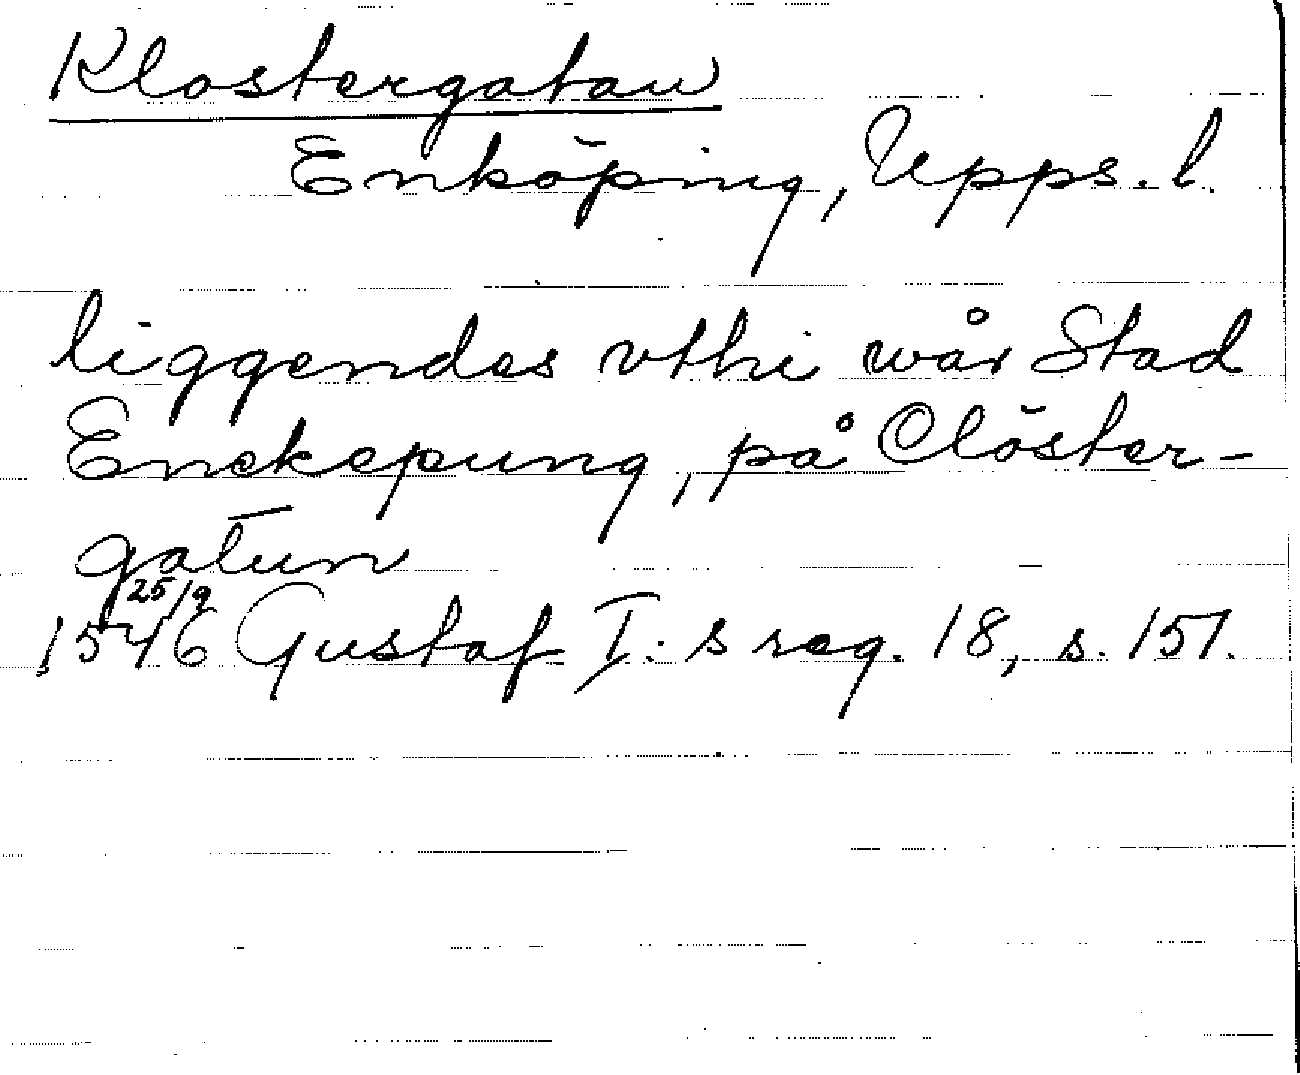 Klostergatan
Enköping, Upps. l.
liggendes vthi wår Stad
Enekepung, på Clöster-
gatun
25/9
1546 Gustaf I:s reg. 18, s. 151.